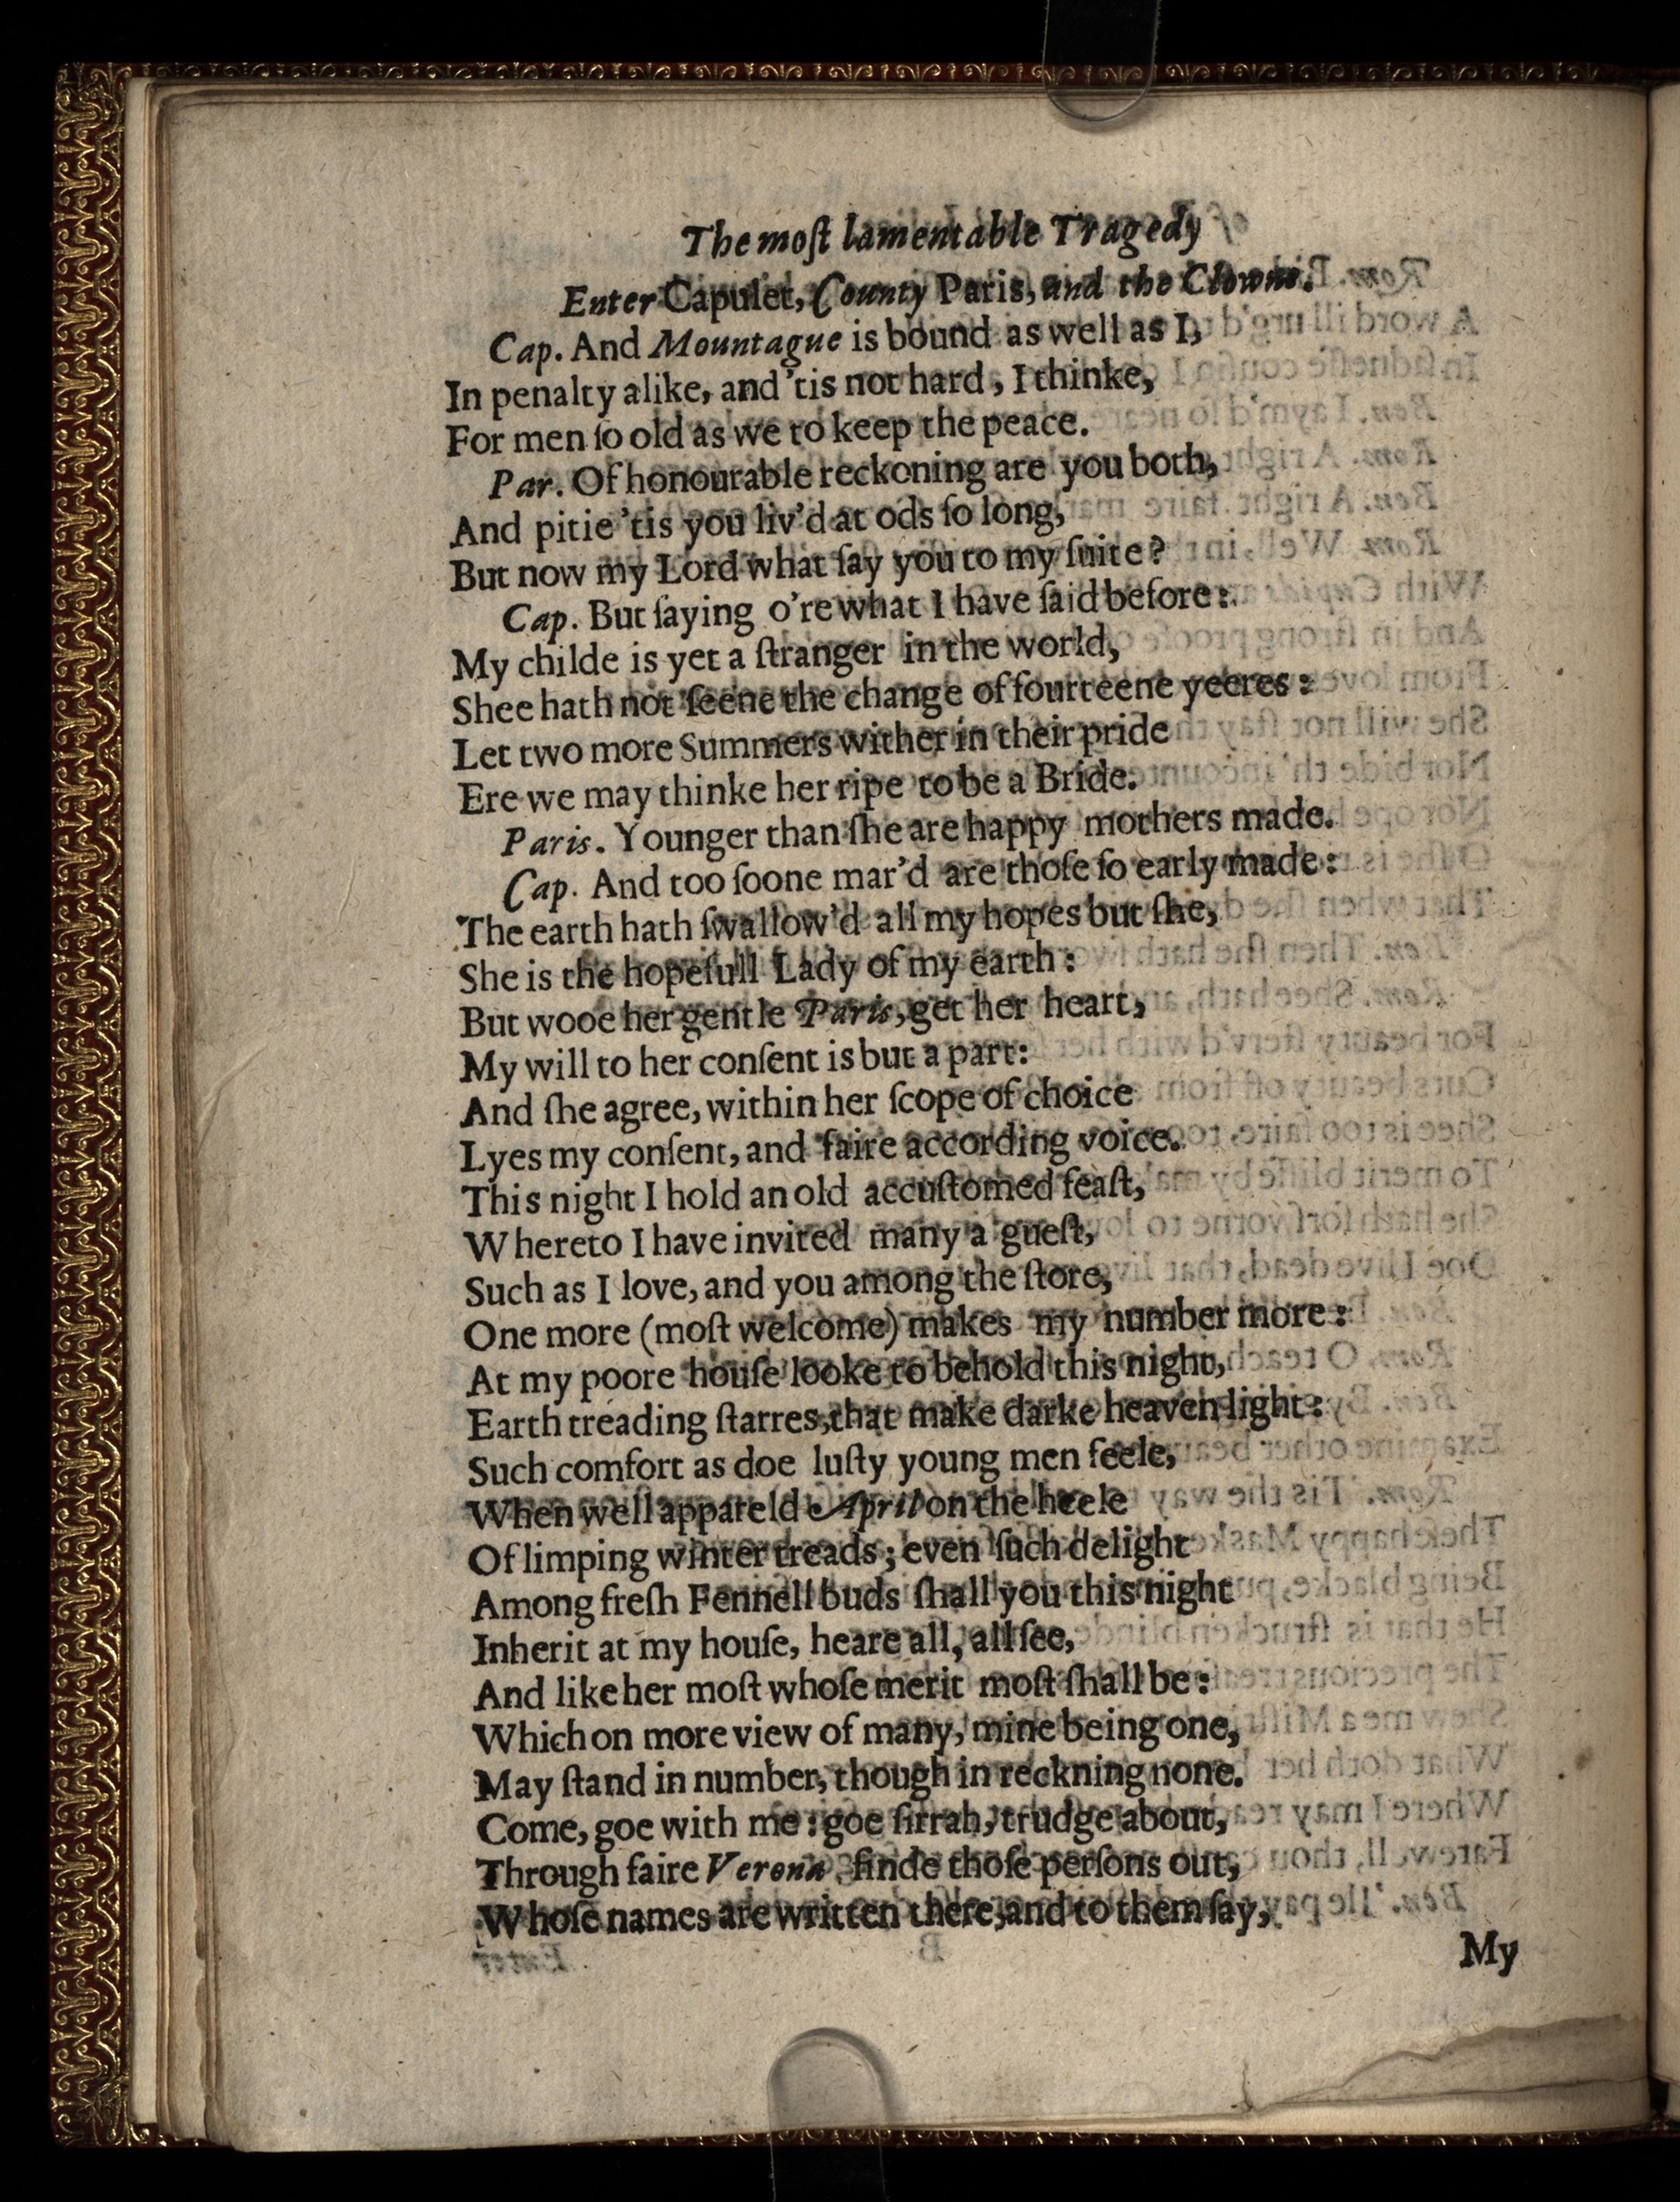 The moſt lamentable Tragedy
Enter Capulet, County Paris, and the Clowne.
Cap. And Mountague is bound as well as I,
In penalty alike, and 'tis not hard, I thinke,
For men ſo old as we to keep the peace.
Par. Of honourable reckoning are you both,
And pitie 'tis you liv'd at ods ſo long,
But now my Lord what ſay you to my ſuite?
Cap. But ſaying o're what I have ſaid before:
My childe is yet a ſtranger in the world,
Shee hath not ſeene the change of fourteene yeeres:
Let two more Summers wither in their pride
Ere we may thinke her ripe to be a Bride.
Paris. Younger than ſhe are happy mothers made.
Cap. And too ſoone mar'd are thoſe ſo early made:
The earth hath ſwallow'd all my hopes but ſhe,
She is the hopefull Lady of my earth:
But wooe her gentle Paris, get her heart,
My will to her conſent is but a part:
And ſhe agree, within her ſcope of choice
Lyes my conſent, and faire according voice.
This night I hold an old accuſtomed feaſt,
Whereto I have invited many a gueſt,
Such as I love, and you among the ſtore,
One more (moſt welcome) makes my number more:
At my poore houſe looke to behold this night,
Earth treading ſtarres, that make darke heaven light:
Such comfort as doe luſty young men feele,
When well appareld April on the heele
Of limping winter treads; even ſuch delight
Among freſh Fennell buds ſhall you this night
Inherit at my houſe, heare all, all ſee,
And like her moſt whoſe merit moſt ſhall be:
Which on more view of many, mine being one,
May ſtand in number, though in reckning none.
Come, goe with me: goe ſirrah, trudge about,
Through faire Verona, finde thoſe perſons out,
Whoſe names are written there, and to them ſay,
My